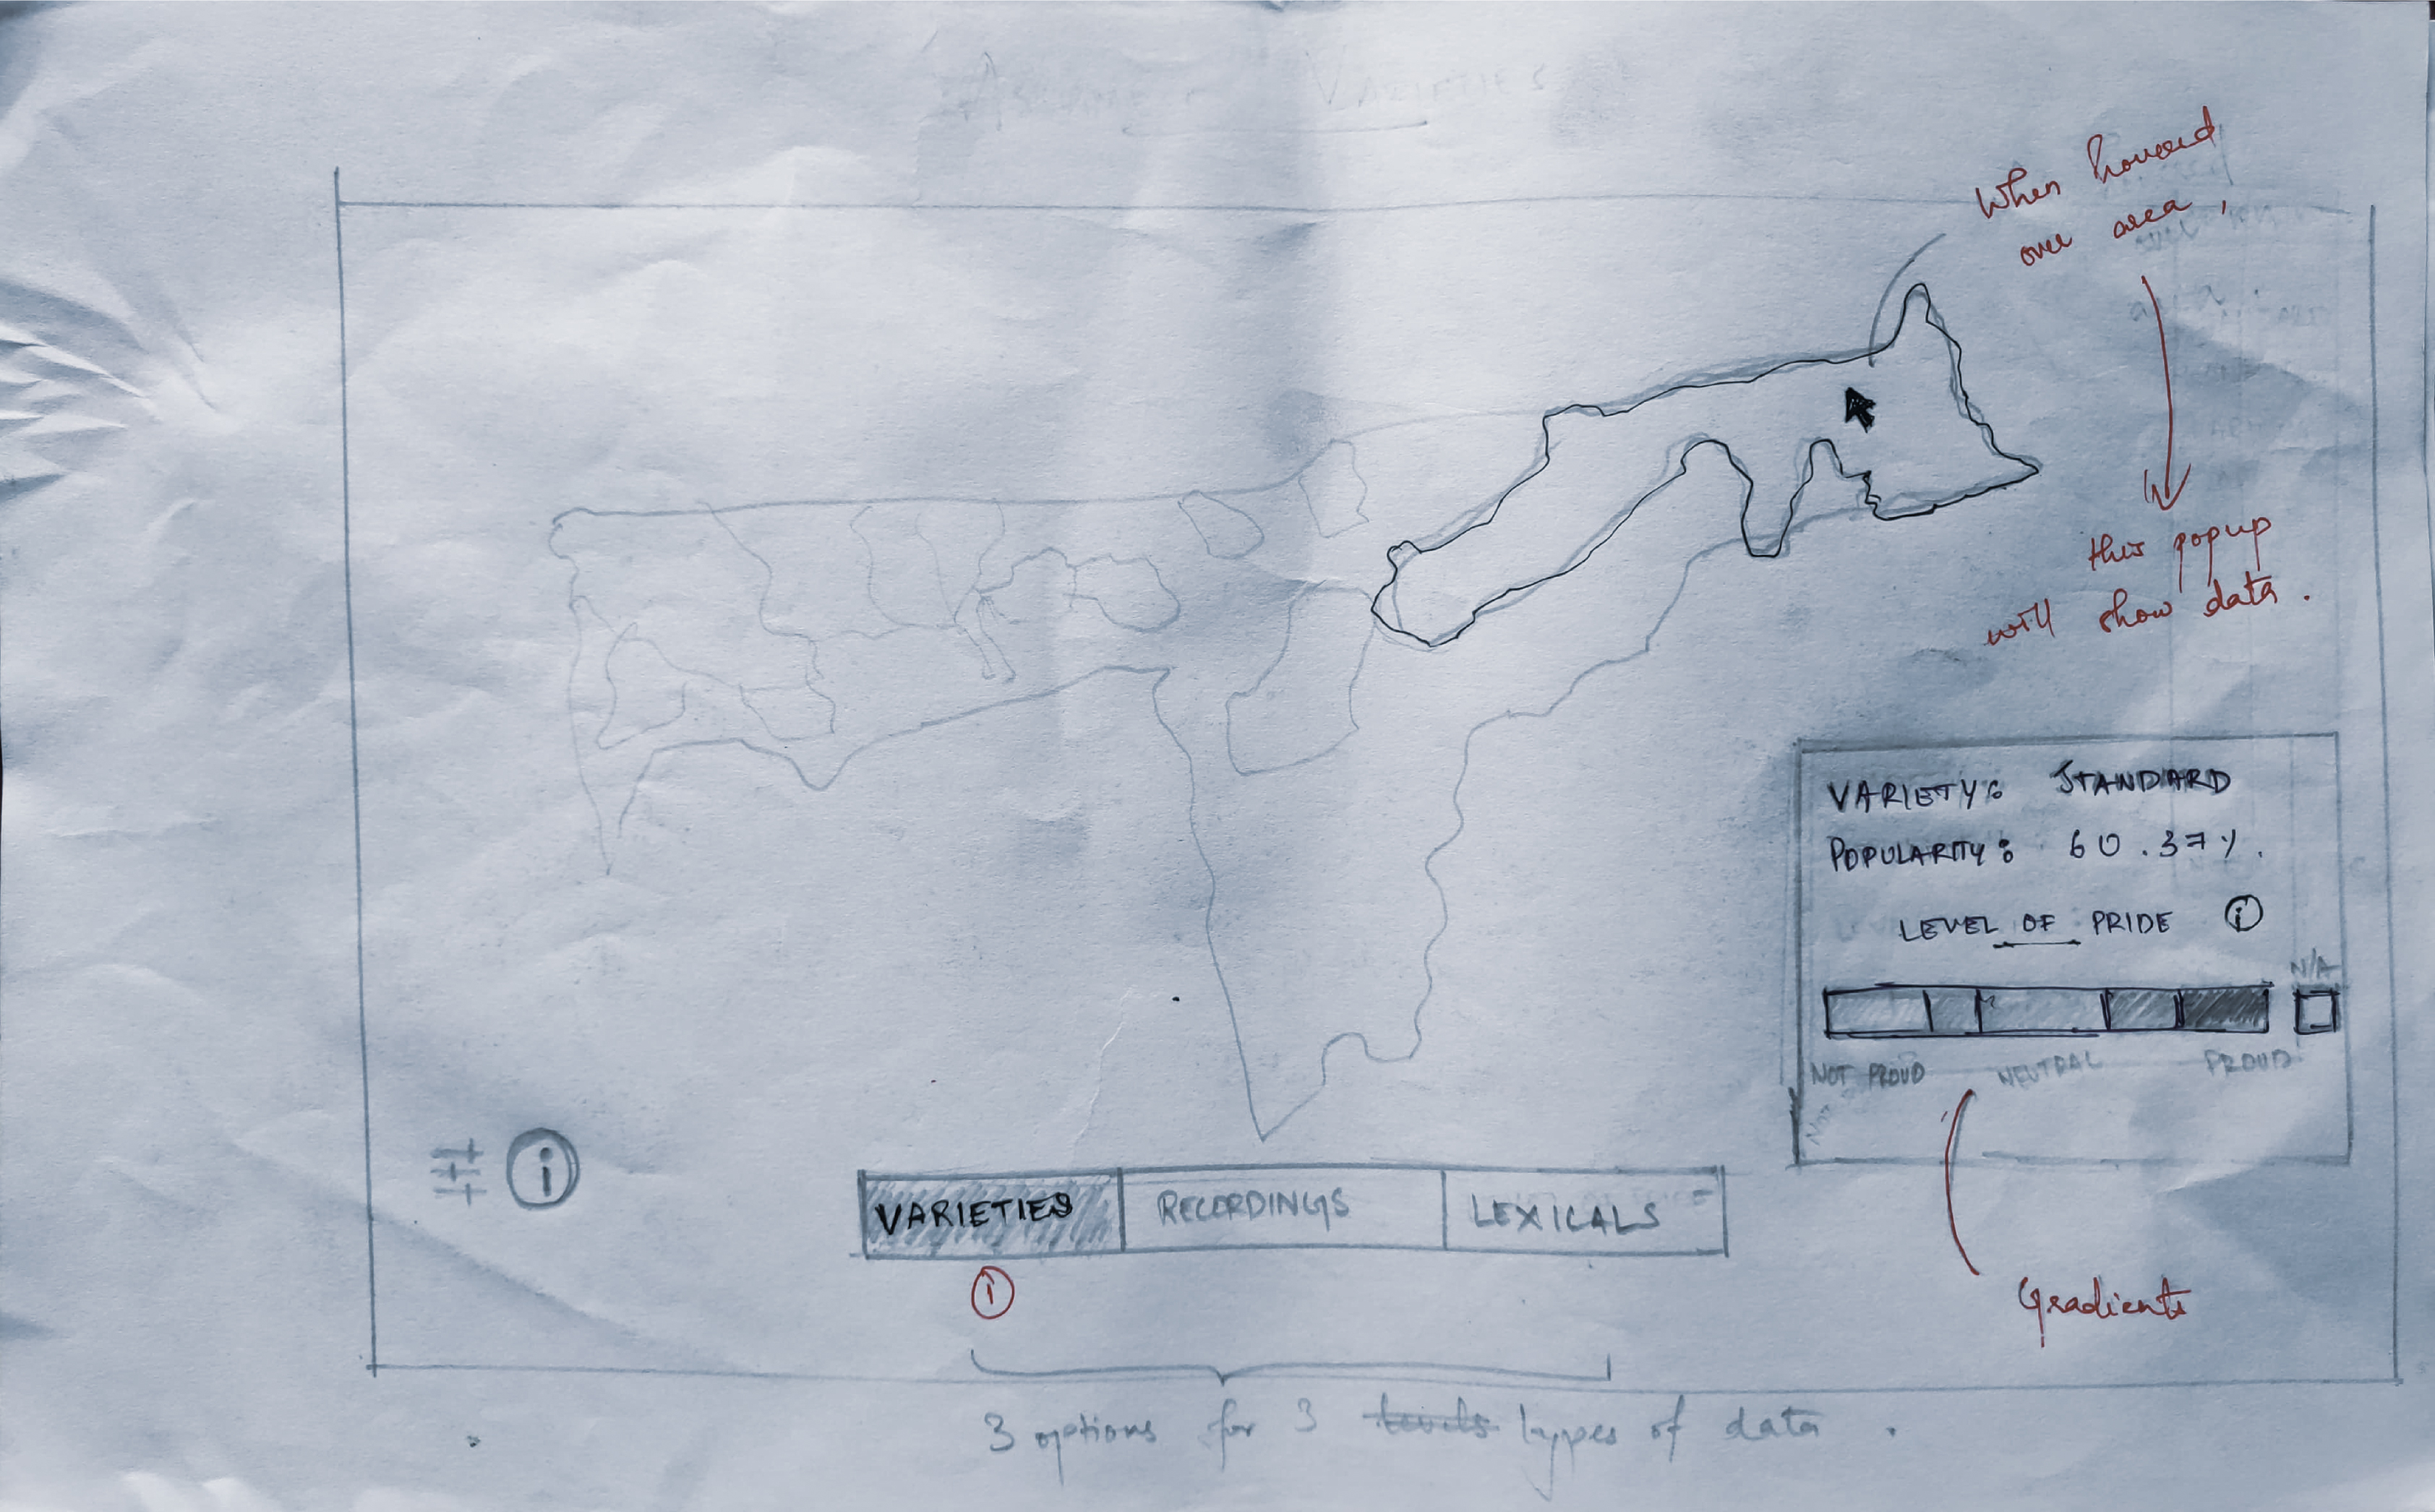 VARIETIES
When hovered
over area,
this popup
will show data.
VARIETY: STANDARD
POPULARITY: 60.37%.
LEVEL OF PRIDE i
N/A
NOT PROUD NEUTRAL PROUD
i
VARIETIES RECORDINGS LEXICALS
1
Gradients
3 options for 3 levels types of data.